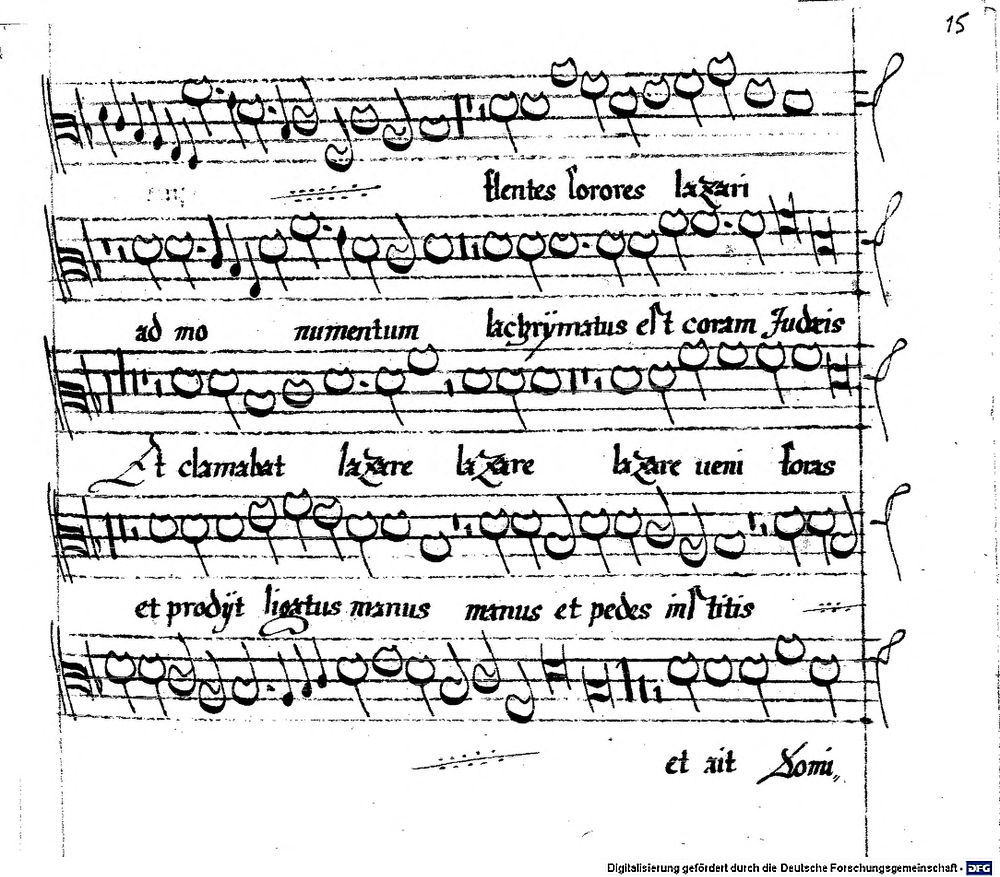 15
flentes sorores lazari
ad mo numentum lachrÿmatus est coram Judæis
Et clamabat lazare lazare lazare ueni foras
et prodÿt ligatus manus manus et pedes institis
et ait Domi„
Digitalisierung gefördert durch die Deutsche Forschungsgemeinschaft - DFG